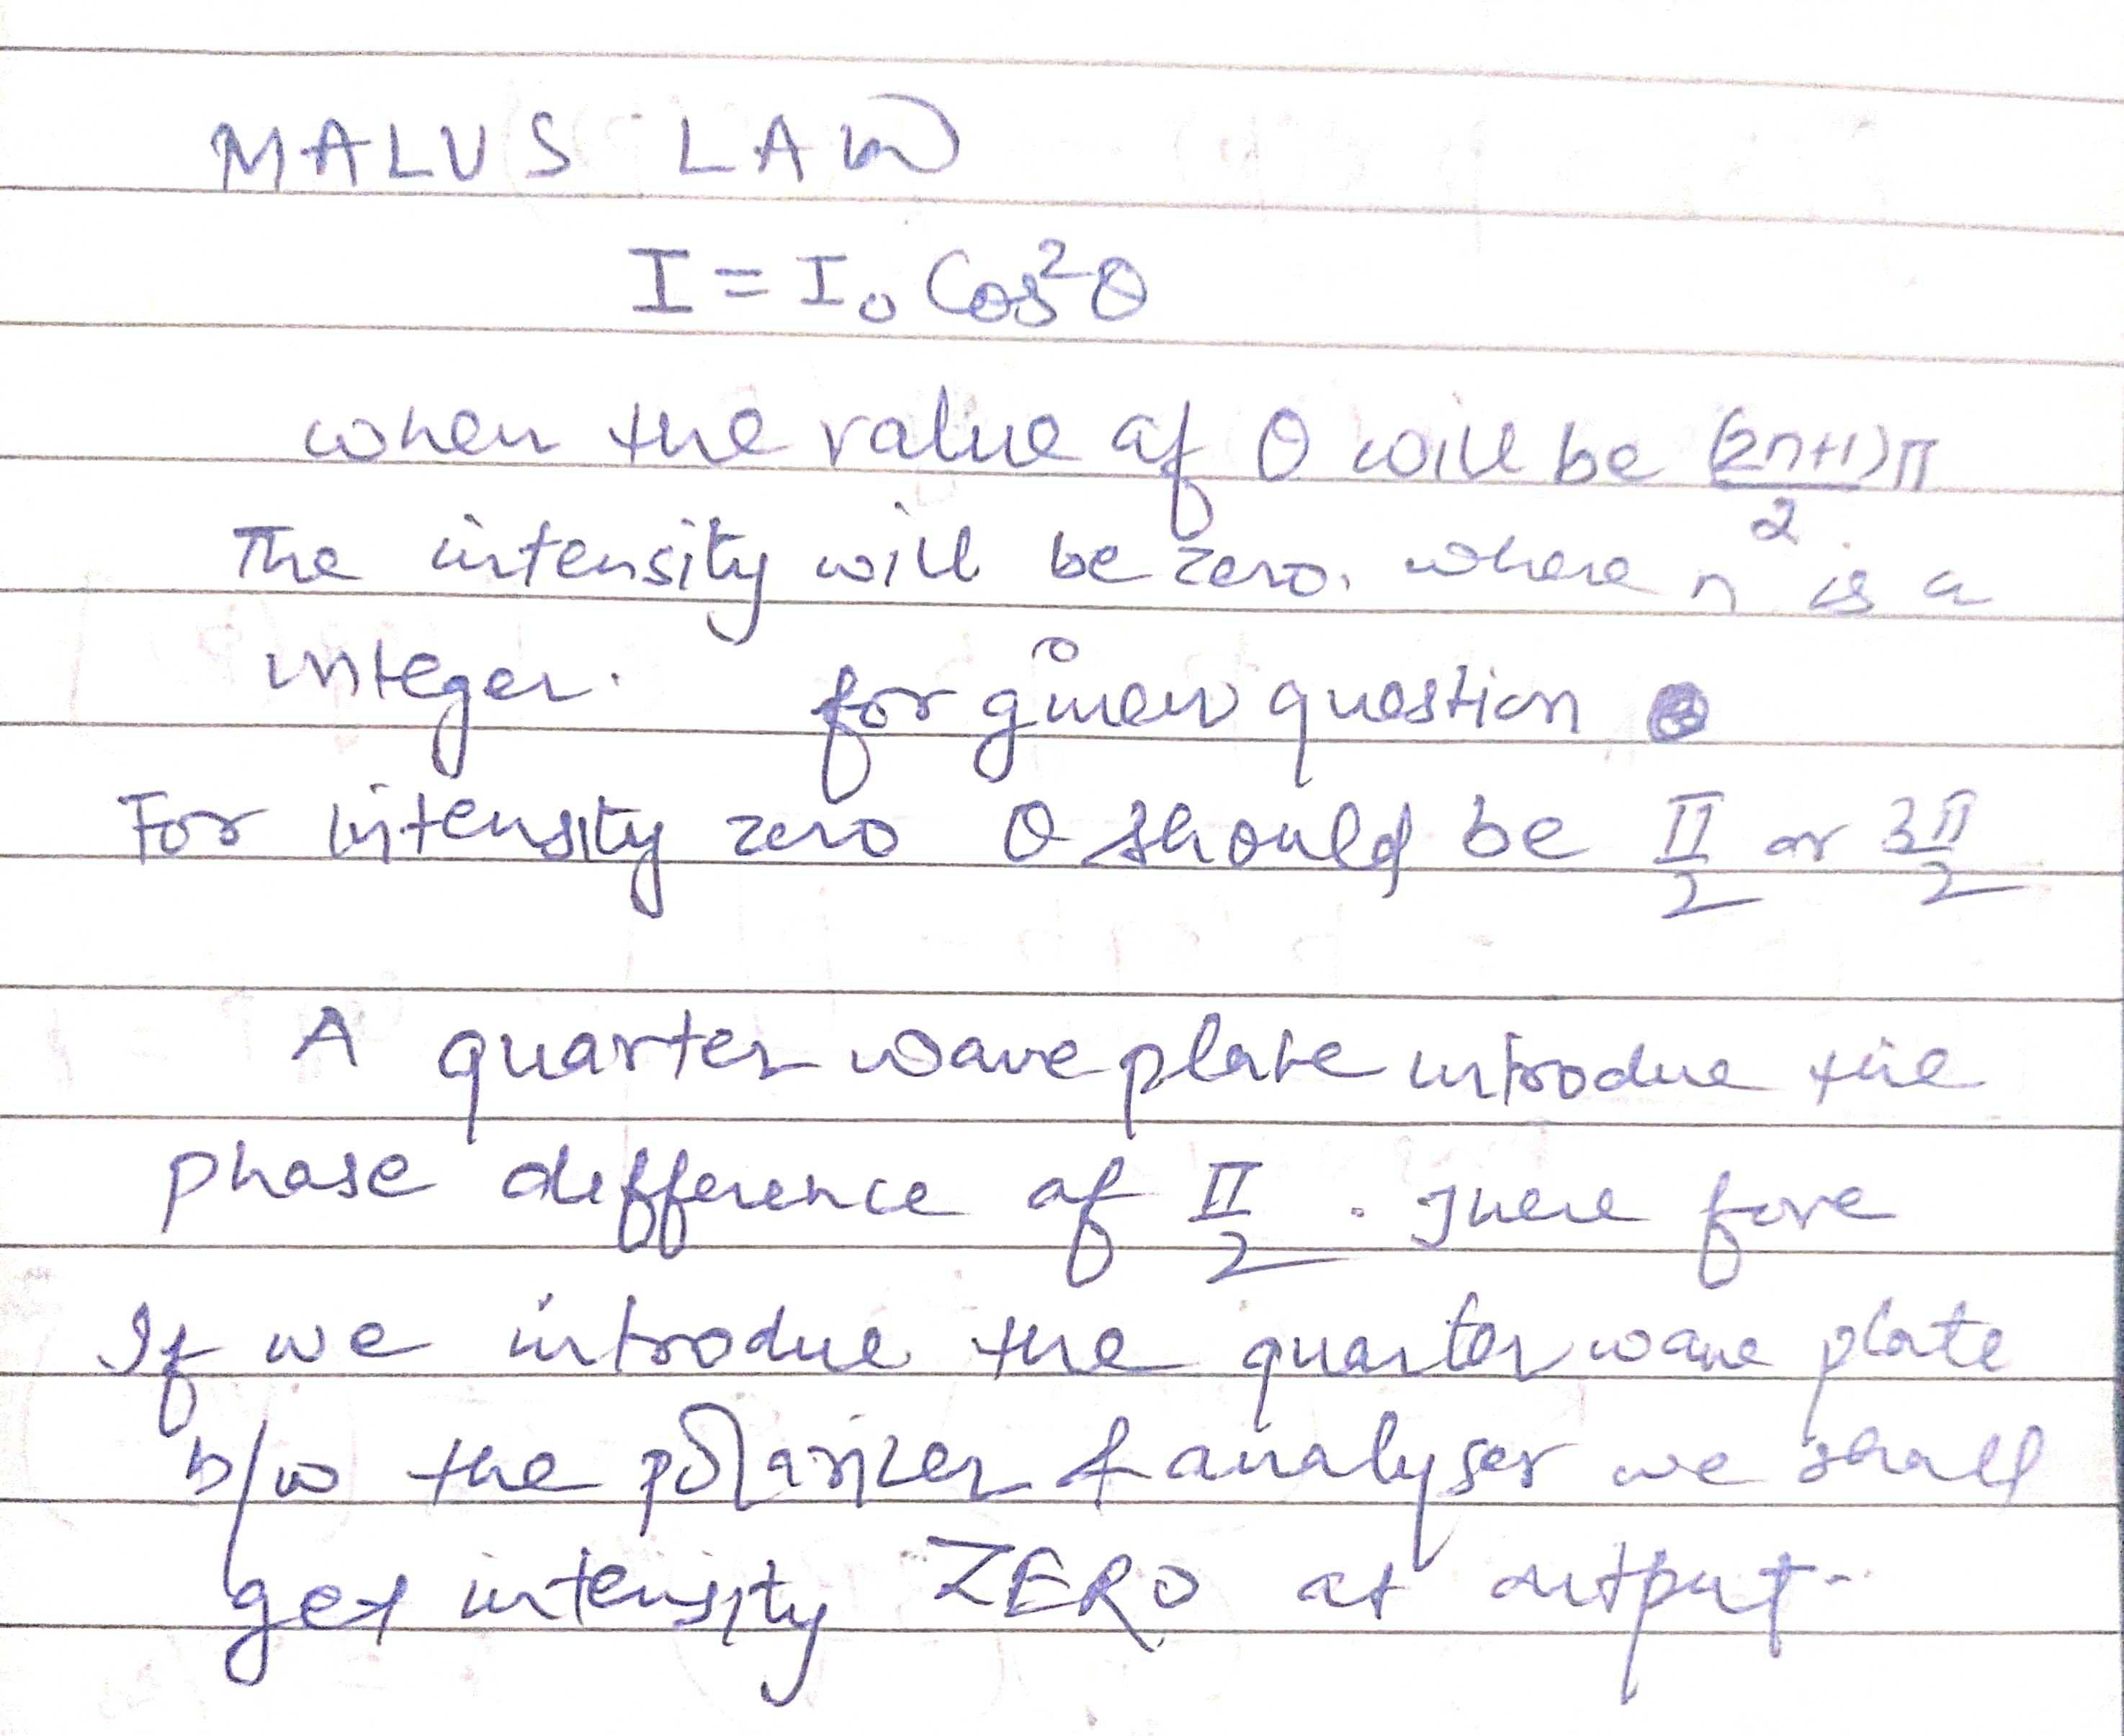 MALUS LAW
I = I₀ Cos²θ
when the value of θ will be (2n+1)π/2
The intensity will be zero. where n is a
integer. for given question
For intensity zero θ should be π/2 or 3π/2
A quarter wave plate introdue the
phase difference of π/2 . There fore
If we introdue the quarter wave plate
b/w the polarizer & analyser we shall
get intensity ZERO at output.